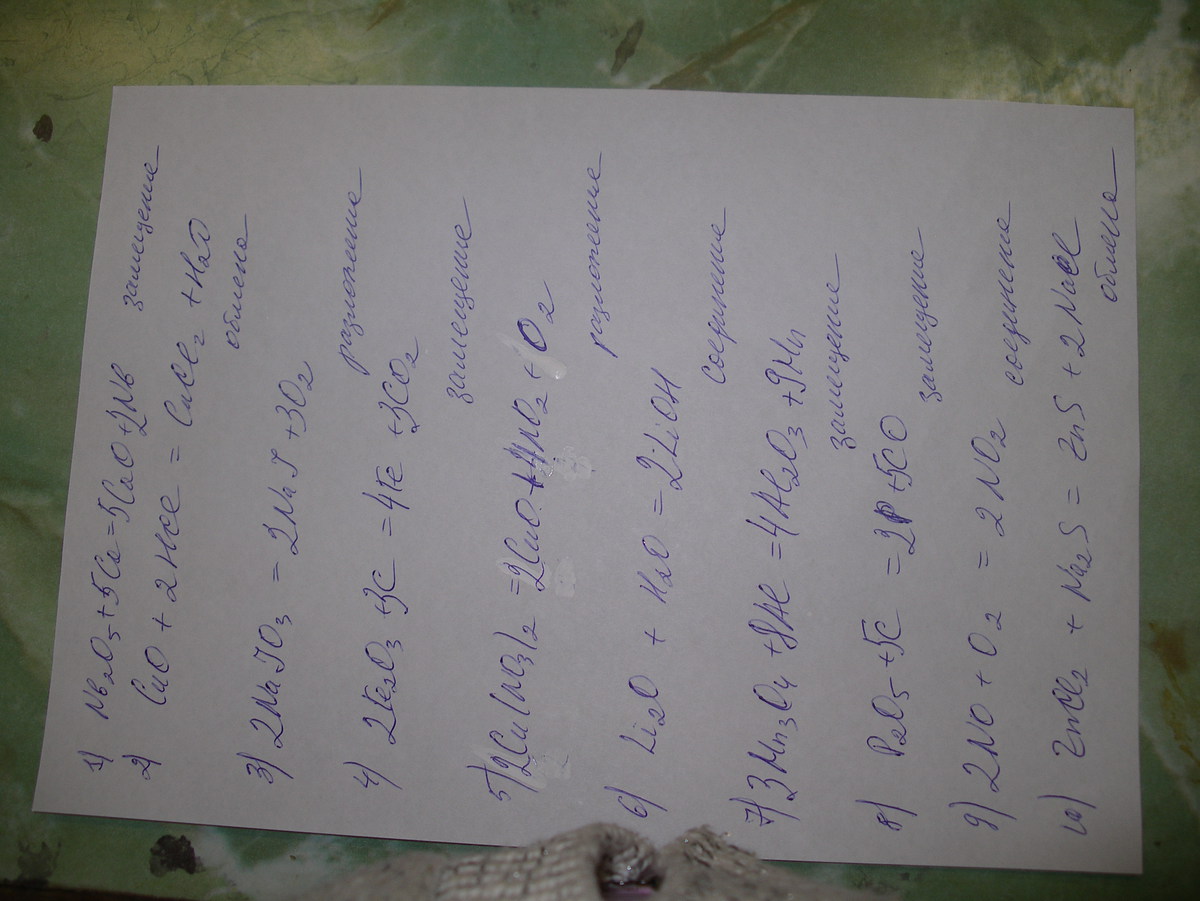 1) Nb₂O₅ + 5Ca = 5CaO + 2Nb
замещение
2) CuO + 2HCl = CuCl₂ + H₂O
обмена
3) 2NaJO₃ = 2NaJ + 3O₂
разложение
4) 2Fe₂O₃ + 3C = 4Fe + 3CO₂
замещение
5) 2Cu(NO₃)₂ = 2CuO + 4NO₂ + O₂
разложение
6) Li₂O + H₂O = 2LiOH
соединение
7) 3Mn₃O₄ + 8Al = 4Al₂O₃ + 9Mn
замещение
8) P₂O₅ + 5C = 2P + 5CO
замещение
9) 2NO + O₂ = 2NO₂
соединение
10) ZnCl₂ + Na₂S = ZnS + 2NaCl
обмена